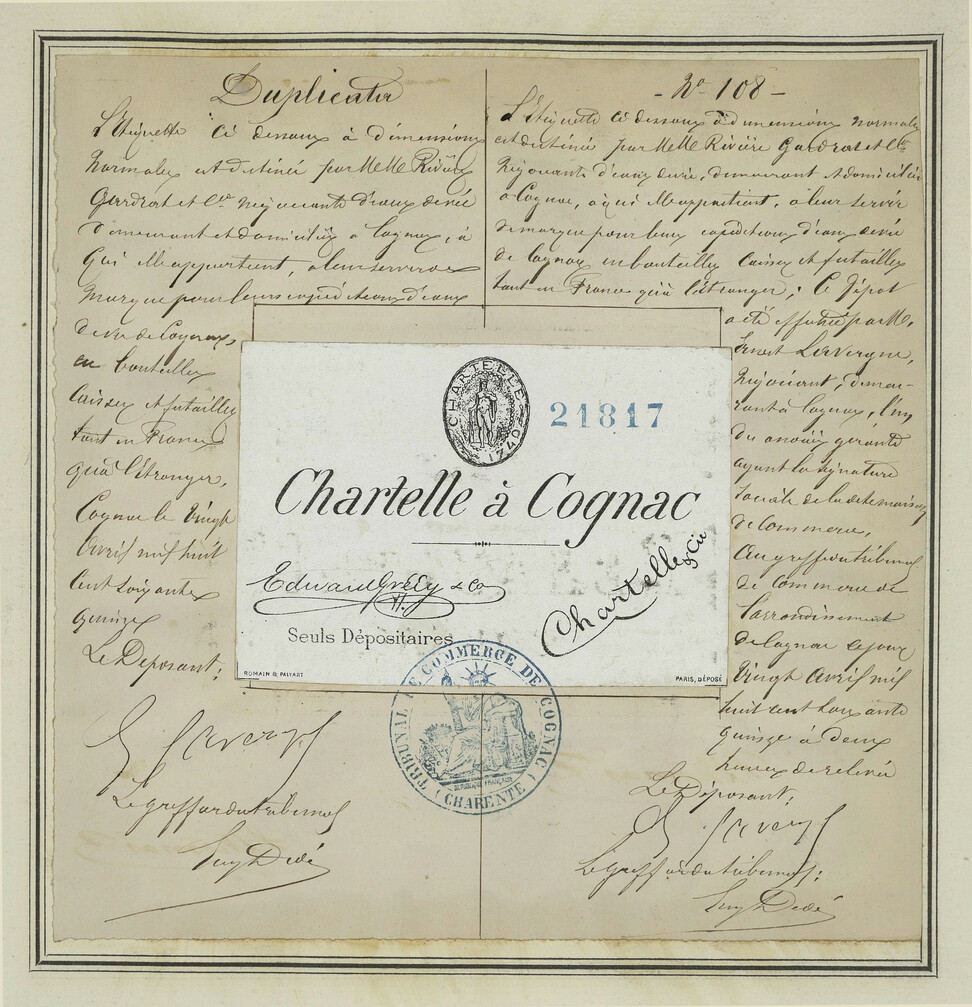 Duplicata
L'Etiquette ci dessous à dimensions
normales est destinée par MMrs Rivière
Gardrat et Cie négociants d'eaux de vie
demeurant et domiciliés à Cognac, à
qui elle appartient, à leur servir de
marque pour leurs expéditions d'eaux
de vie de Cognac,
en bouteilles
caisses et futailles
tant en France
qu'à l'étranger,
Cognac le vingt
avril mil huit
cent soixante
quinze
Le Déposant;
E. Lavergne
Le greffier du tribunal
- No 108 -
L'Etiquette ci dessous à dimensions normales
est destinée par MMrs Rivière Gardrat et Cie
négociants d'eaux de vie, demeurant et domiciliés
à Cognac, à qui elle appartient, à leur servir
de marque pour leurs expéditions d'eaux de vie
de Cognac en bouteilles caisses et futailles
tant en France qu'à l'étranger; Ce dépôt
a été effectué par Mr
Ernest Lavergne,
négociant, demeu-
rant à Cognac, l'un
des associés gérants
ayant la signature
sociale de la dite maison
de commerce,
Au greffe du tribunal
de commerce de
l'arrondissement
de Cognac ce jour
vingt avril mil
huit cent soixante
quinze à deux
heures de relevée
Le Déposant;
E. Lavergne
Le greffier du tribunal;
CHARTELLE
1740
21817
Chartelle à Cognac
Chartelle & Cie
Seuls Dépositaires
ROMAIN & PALYART
PARIS, DÉPOSÉ
TRIBUNAL DE COMMERCE DE COGNAC
(CHARENTE)
RÉPUBLIQUE FRANÇAISE